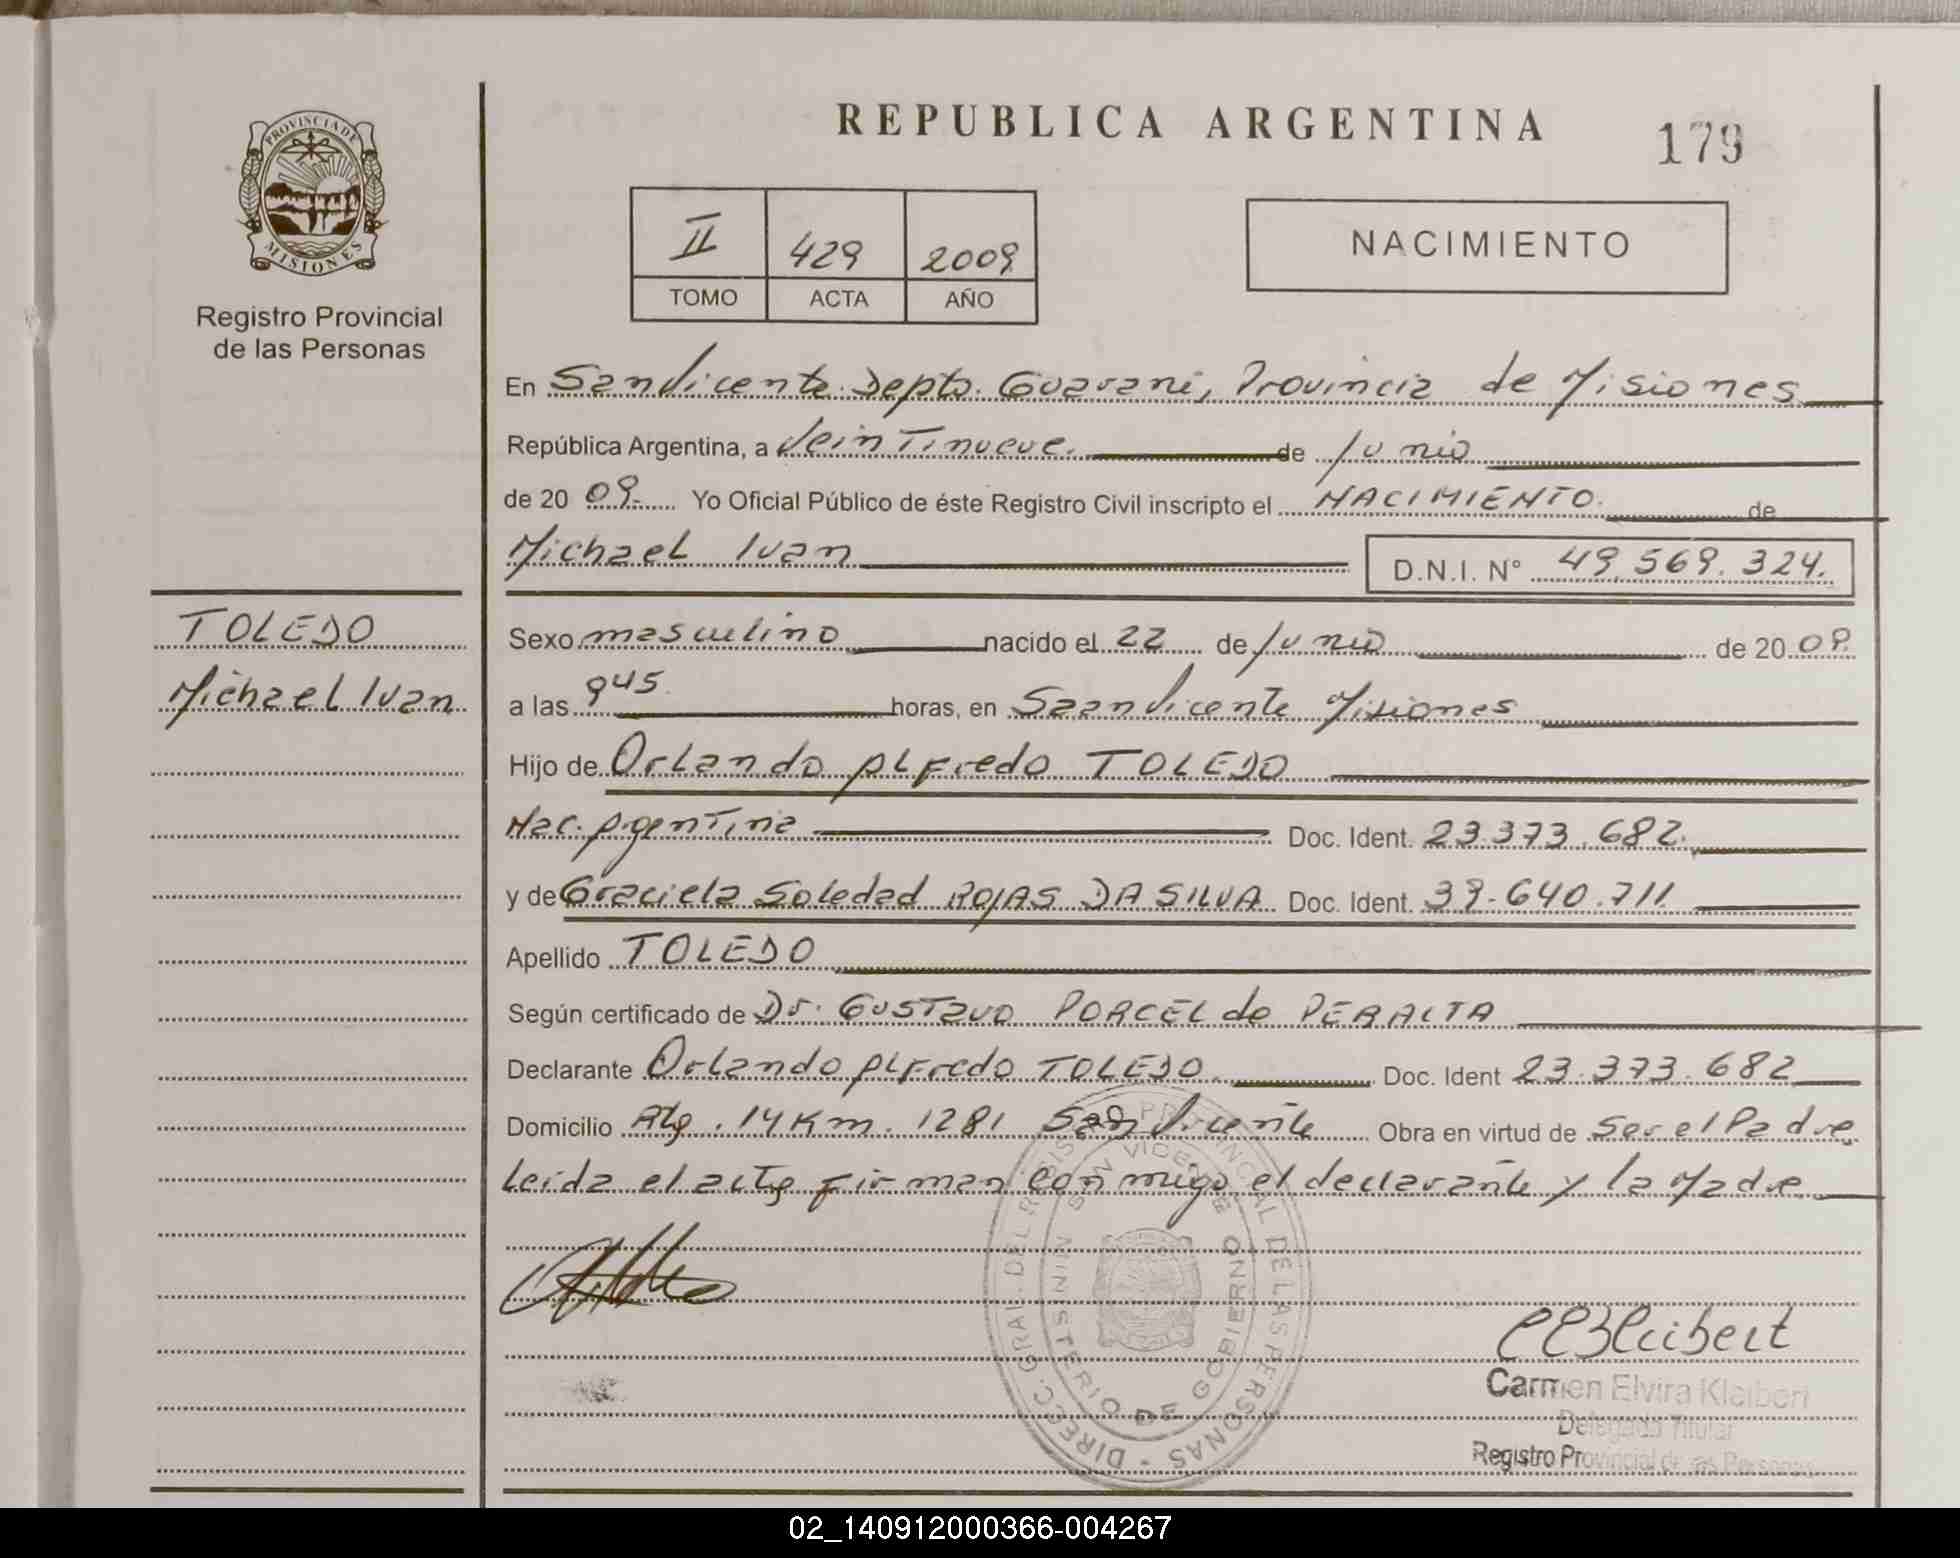 REPUBLICA ARGENTINA
179
PROVINCIA DE
MISIONES
Registro Provincial
de las Personas
II 429 2009
TOMO ACTA AÑO
NACIMIENTO
En San Vicente Depto. Guarani, Provincia de Misiones
República Argentina, a Veintinueve. de Junio
de 20 09. Yo Oficial Público de éste Registro Civil inscripto el NACIMIENTO. de
Michael Ivan D.N.I. N° 49.569.324.
TOLEDO
Michael Ivan
Sexo masculino nacido el 22 de Junio de 20 09.
a las 945. horas, en Saan Vicente Misiones
Hijo de Orlando Alfredo TOLEDO
Nac. Argentina Doc. Ident. 23.373.682.
y de Graciela Soledad ROJAS DA SILVA Doc. Ident. 39.640.711
Apellido TOLEDO
Según certificado de Dr. Gustavo PORCEL de PERALTA
Declarante Orlando Alfredo TOLEDO. Doc. Ident 23.373.682
Domicilio 14 Km. 1281 San Vicente Obra en virtud de Ser el Padre
Leida el acta firman conmigo el declarante y la Madre.
DIREC. GRAL. DEL REGISTRO PROVINCIAL DE LAS PERSONAS
SAN VICENTE
MINISTERIO DE GOBIERNO
CEKleibert
Carmen Elvira Kleibert
Delegada Titular
Registro Provincial de las Personas
02_140912000366-004267